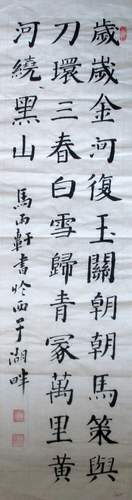 歲歲金河復玉關朝朝馬策與
刀環三春白雪歸青冢萬里黃
河繞黑山
馬雨軒書於西子湖畔